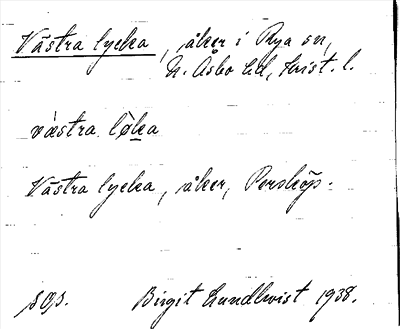 Västra lycka, åker i Rya sn,
N. Åsbo hd, Krist. l.
vȧstra lø̀ka
Västra lycka, åker, Perskȯp.
Birgit Lundkvist 1938.